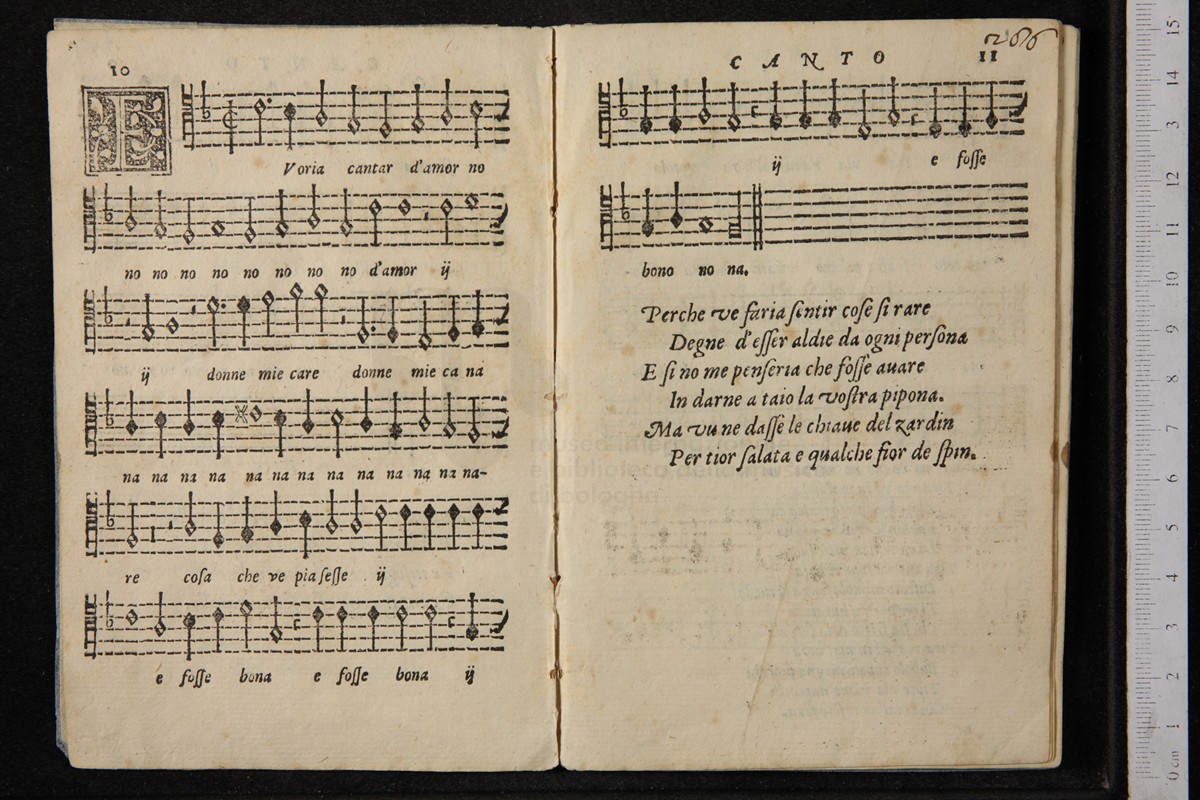 10
E
Voria cantar d'amor no
no no no no no no no no d'amor ij
ij donne mie care donne mie ca na
na na na na na na na na na na na na na-
re cosa che ve piasesse ij
e fosse bona e fosse bona ij
266
CANTO 11
ij e fosse
bono no na.
Perche ve faria sentir cose si rare
Degne d'esser aldie da ogni persona
E si no me penseria che fosse auare
In darne a taio la vostra pipona.
Ma vu ne dasse le chiaue del zardin
Per tior salata e qualche fior de spin.
museo
e biblioteca
di bologna
0 cm 1 2 3 4 5 6 7 8 9 10 11 12 3 14 15